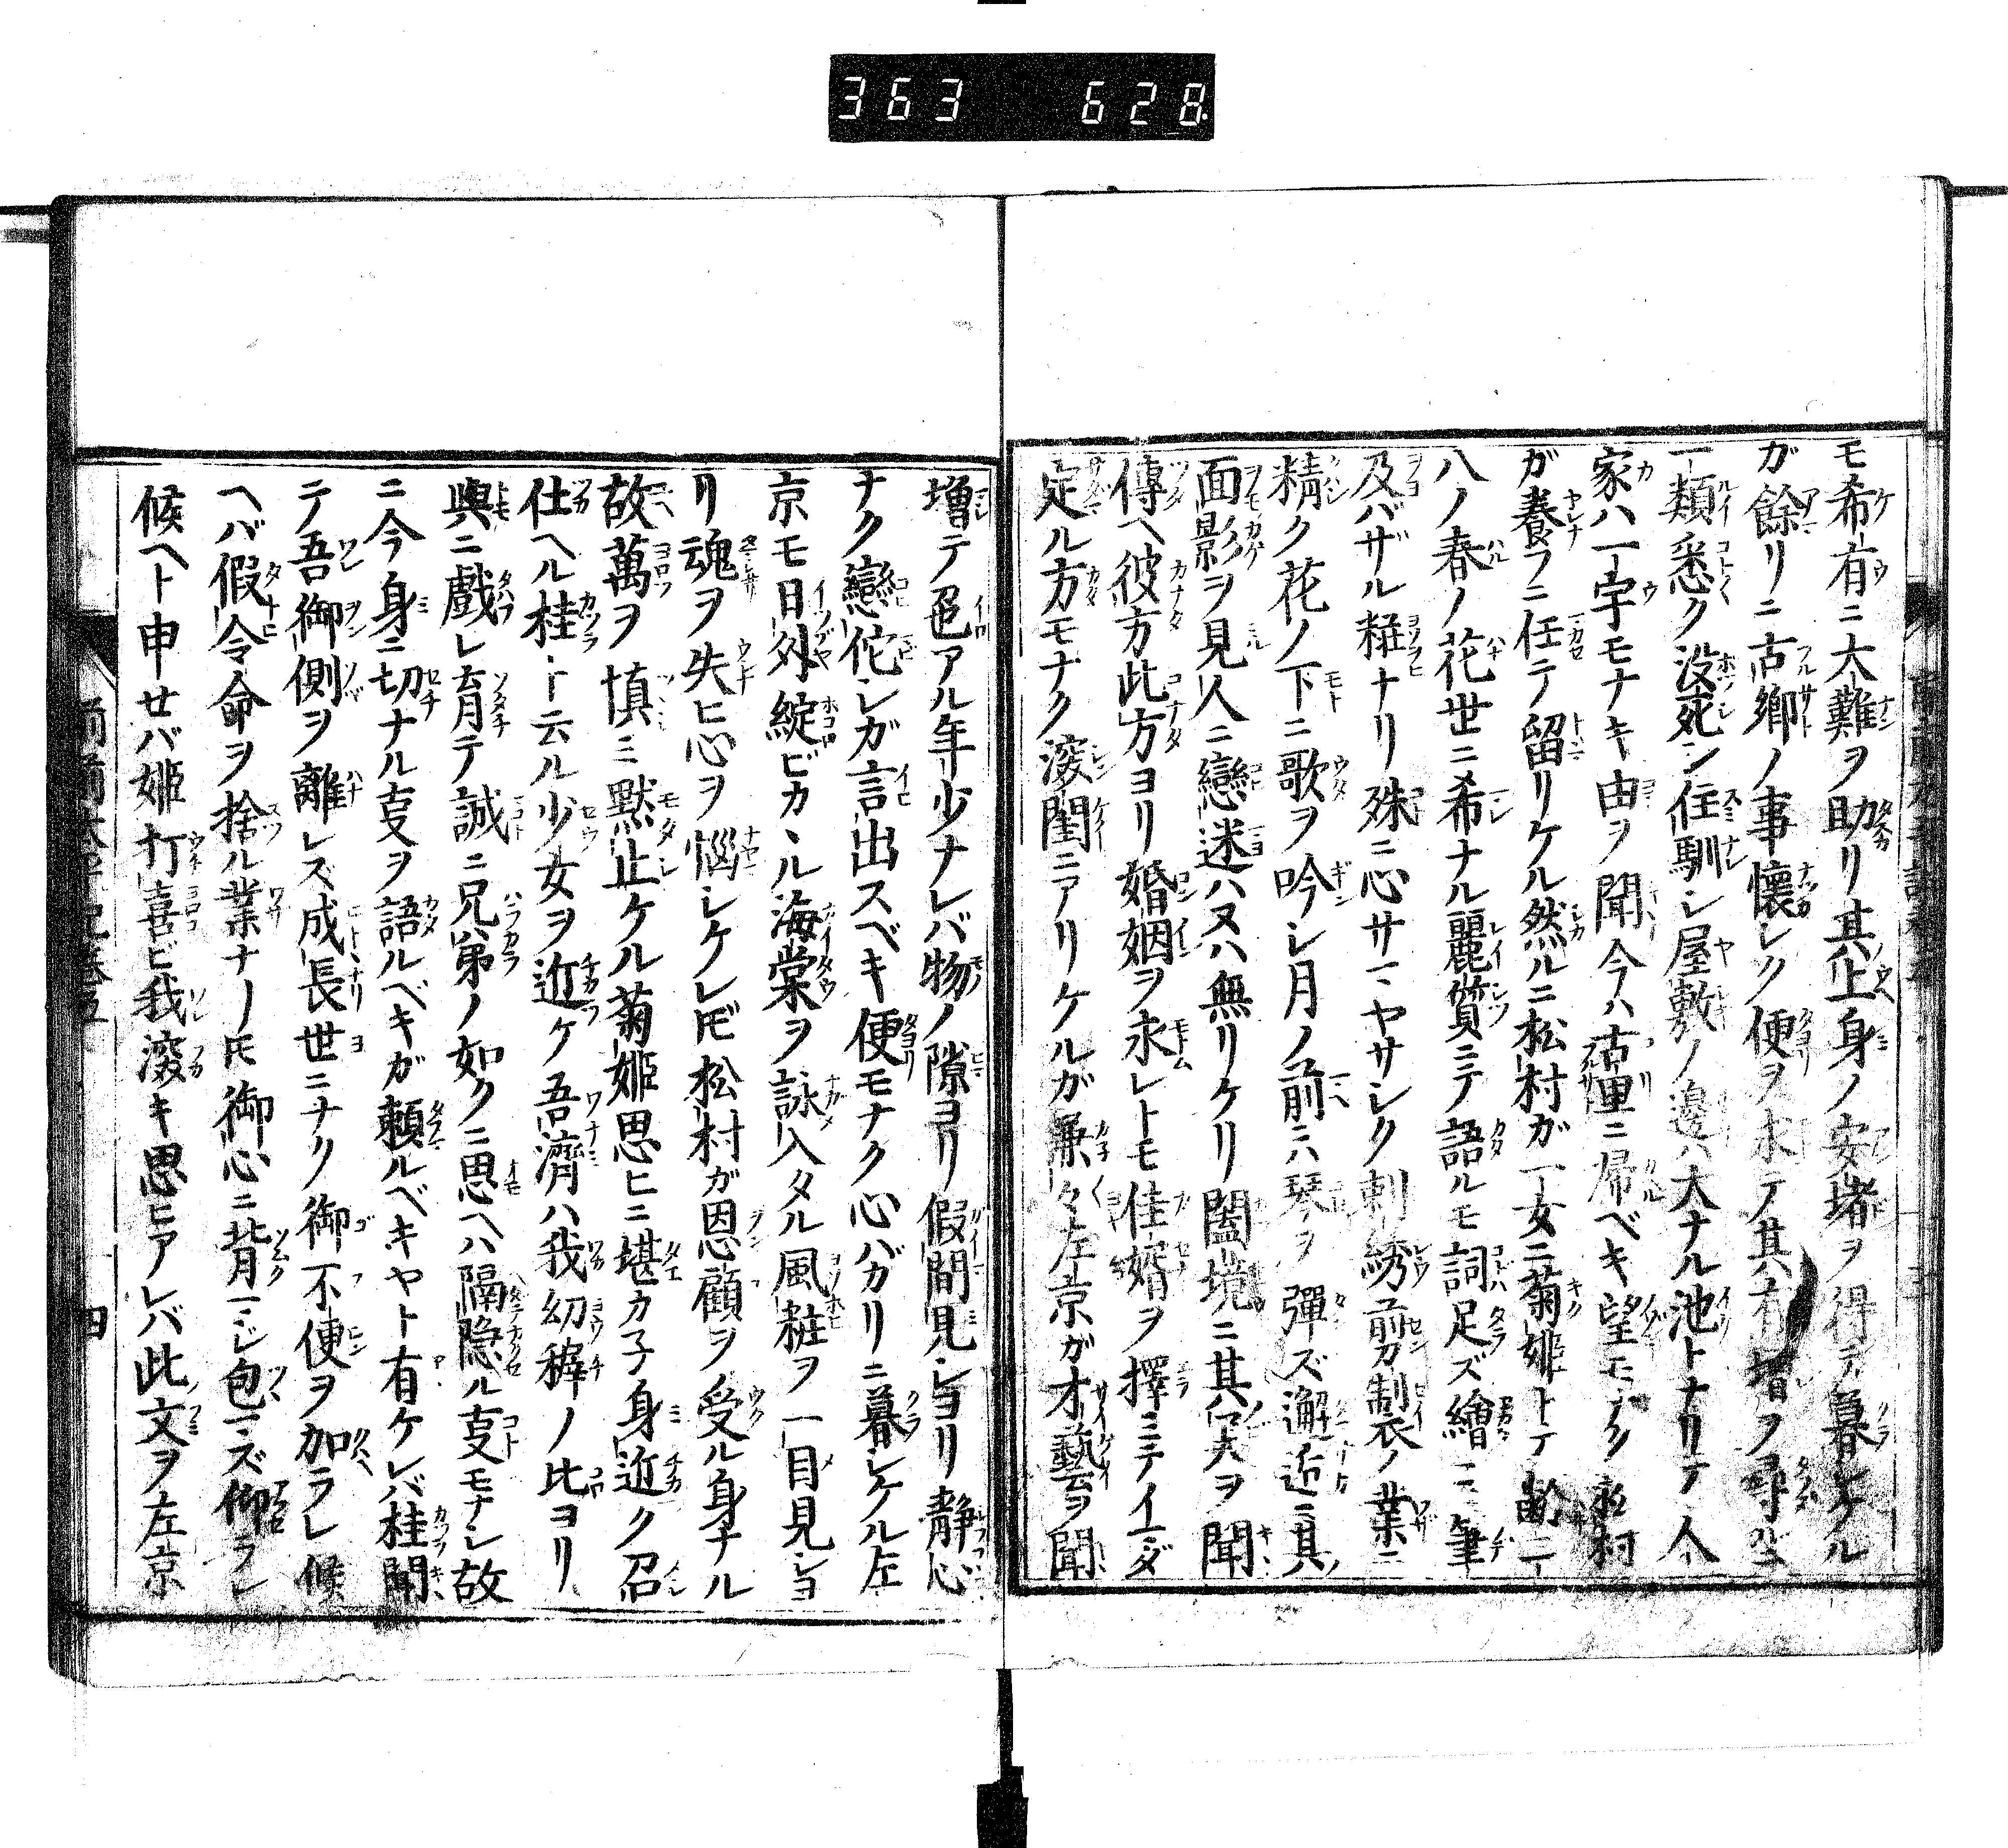 363 628
モ希有ニ大難ヲ助リ其上身ノ安堵ヲ得テ暮シケル
ガ餘リニ古郷ノ事懐シク便ヲ求テ其村ヲ尋ルニ
一類悉ク没死シ住馴シ屋敷ノ邊ハ大ナル池トナリテ人
家ハ一宇モナキ由ヲ聞今ハ古里ニ帰ベキ望モナク松村
ガ養フニ任テ留リケル然ルニ松村ガ一女ニ菊姫トテ齢二
八ノ春ノ花世ニ希ナル麗質ニテ語ルモ詞足ズ繪ニ筆
及バザル粧ナリ殊ニ心サマヤサシク刺綉剪制衣ノ業ニ
精ク花ノ下ニ歌ヲ吟シ月ノ前ニハ琴ヲ彈ズ邂逅ニ其
面影ヲ見人ニ戀迷ハヌハ無リケリ闔境ニ其美ヲ聞
傳ヘ彼方此方ヨリ婚姻ヲ求レトモ佳婿ヲ擇ミテイマダ
定ル方モナク深閨ニアリケルガ兼々左京ガ才藝ヲ聞
増テ色アル年少ナレバ物ノ隙ヨリ假間見シヨリ静心
ナク戀佗シガ言出スベキ便モナク心バガリニ暮シケル左
京モ日外綻ビカヽル海棠ヲ詠入タル風粧ヲ一目見シヨ
リ魂ヲ失ヒ心ヲ惱シケレ𪜈松村ガ恩顧ヲ受ル身ナル
故萬ヲ慎ミ黙止ケル菊姫思ヒニ堪カ子身近ク召
仕ヘル桂ト云ル少女ヲ近ケ吾濟ハ我幼穉ノ比ヨリ
與ニ戲レ育テ誠ニ兄弟ノ如クニ思ヘハ隔隠ル㕝モナシ故
ニ今身ニ切ナル㕝ヲ語ルベキガ頼ルベキヤト有ケレバ桂聞
テ吾御側ヲ離レズ成長世ニナク御不便ヲ加ラレ候
ヘバ假令命ヲ捨ル業ナリ𪜈御心ニ背マシ包マズ仰ラレ
候ヘト申せバ姫打喜ビ我深キ思ヒアレバ此文ヲ左京
四